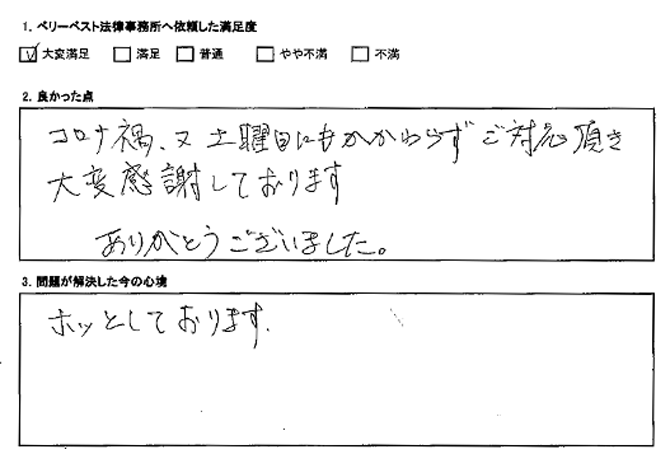 1. ベリーベスト法律事務所へ依頼した満足度
☑ 大変満足 □ 満足 □ 普通 □ やや不満 □ 不満
2. 良かった点
コロナ禍、又 土曜日にもかかわらずご対応頂き
大変感謝しております
ありがとうございました。
3. 問題が解決した今の心境
ホッとしております.